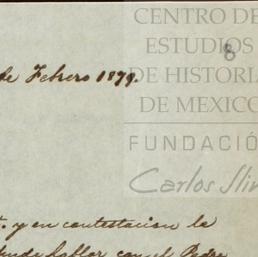 CENTRO DE
ESTUDIOS
8
DE HISTORIA
DE MEXICO
FUNDACIÓ
Carlos Slim
de Febrero 1879.
y en contestacion le
hablar con el Padre